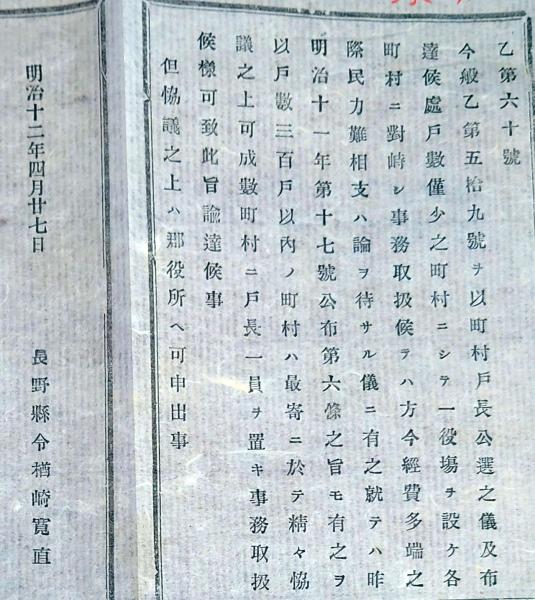 乙第六十號
今般乙第五拾九號ヲ以町村戸長公選之儀及布
達候處戸數僅少之町村ニシテ一役場ヲ設ケ各
町村ニ對峙シ事務取扱候テハ方今經費多端之
際民力難相支ハ論ヲ待サル儀ニ有之就テハ昨
明治十一年第十七號公布第六條之旨モ有之ヲ
以戸數三百戸以內ノ町村ハ最寄ニ於テ精々恊
議之上可成數町村ニ戸長一員ヲ置キ事務取扱
候樣可致此旨諭達候事
但恊議之上ハ郡役所ヘ可申出事
明治十二年四月廿七日
長野縣令楢崎寬直